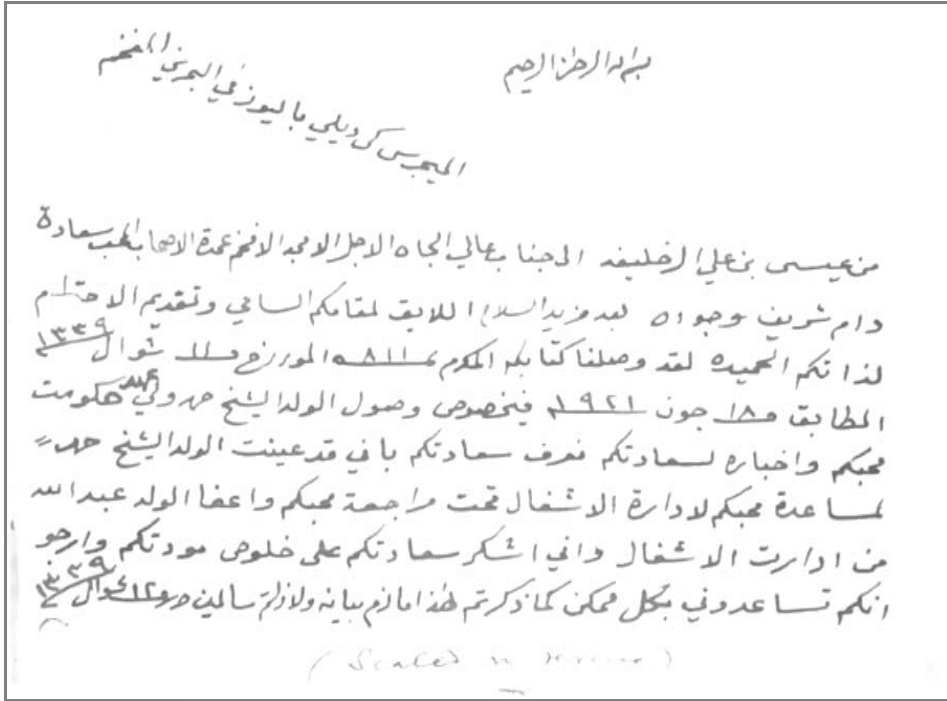 بسم الله الرحمن الرحيم
الميجر سي كي ديلي باليوز في البحرين المفخم
من عيسى بن علي الخليفه الى جناب عالي الجاه الاجل الامجد الافخم عمدة الاصحاب المحب سعادة
دام شريف وجوده بعد مزيد السلام اللايق لمقامكم السامي وتقديم الاحترام
لذاتكم الحميده لقد وصلنا كتابكم المكرم نمـ ٨١١ـره المورخ ١١ شوال ١٣٣٩
المطابق ١٨ جون ١٩٢١م فبخصوص وصول الولد الشيخ حمد ولي عهد حكومت
محبكم واخباره لسعادتكم فعرف سعادتكم باني قد عينت الولد الشيخ حمد
لمساعدة محبكم لادارة الاشغال تحت مراجعة محبكم واعفا الولد عبدالله
من ادارت الاشغال واني اشكر سعادتكم على خلوص مودتكم وارجو
انكم تساعدوني بكل ممكن كما ذكرتم هذا ما لزم بيانه ولازلتم سالمين ١٢ شوال ١٣٣٩
(Sealed in